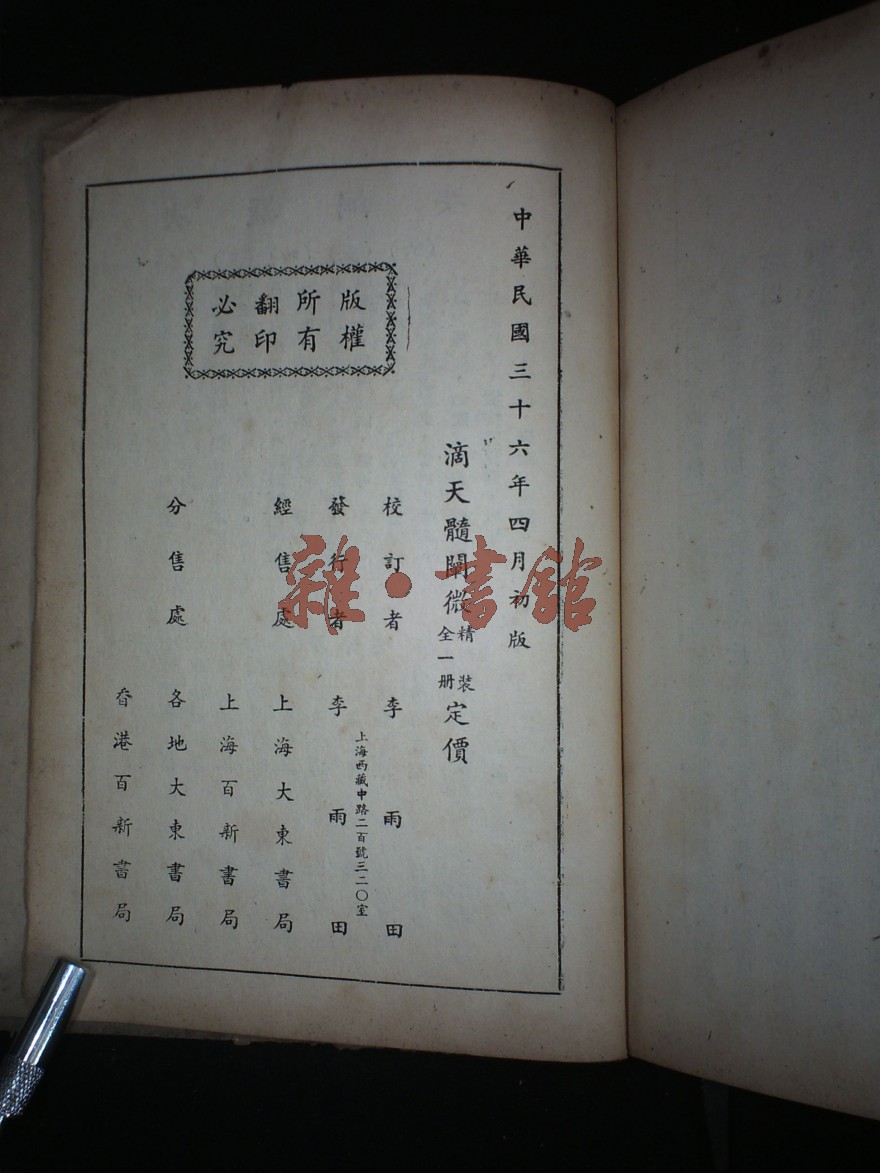 中華民國三十六年四月初版
滴天髓闡微
精裝
全一册
定價
校訂者 李雨田
上海西藏中路二百號三二〇室
發行者 李雨田
經售處 上海大東書局
上海百新書局
分售處 各地大東書局
香港百新書局
版權
所有
翻印
必究
雜·書館